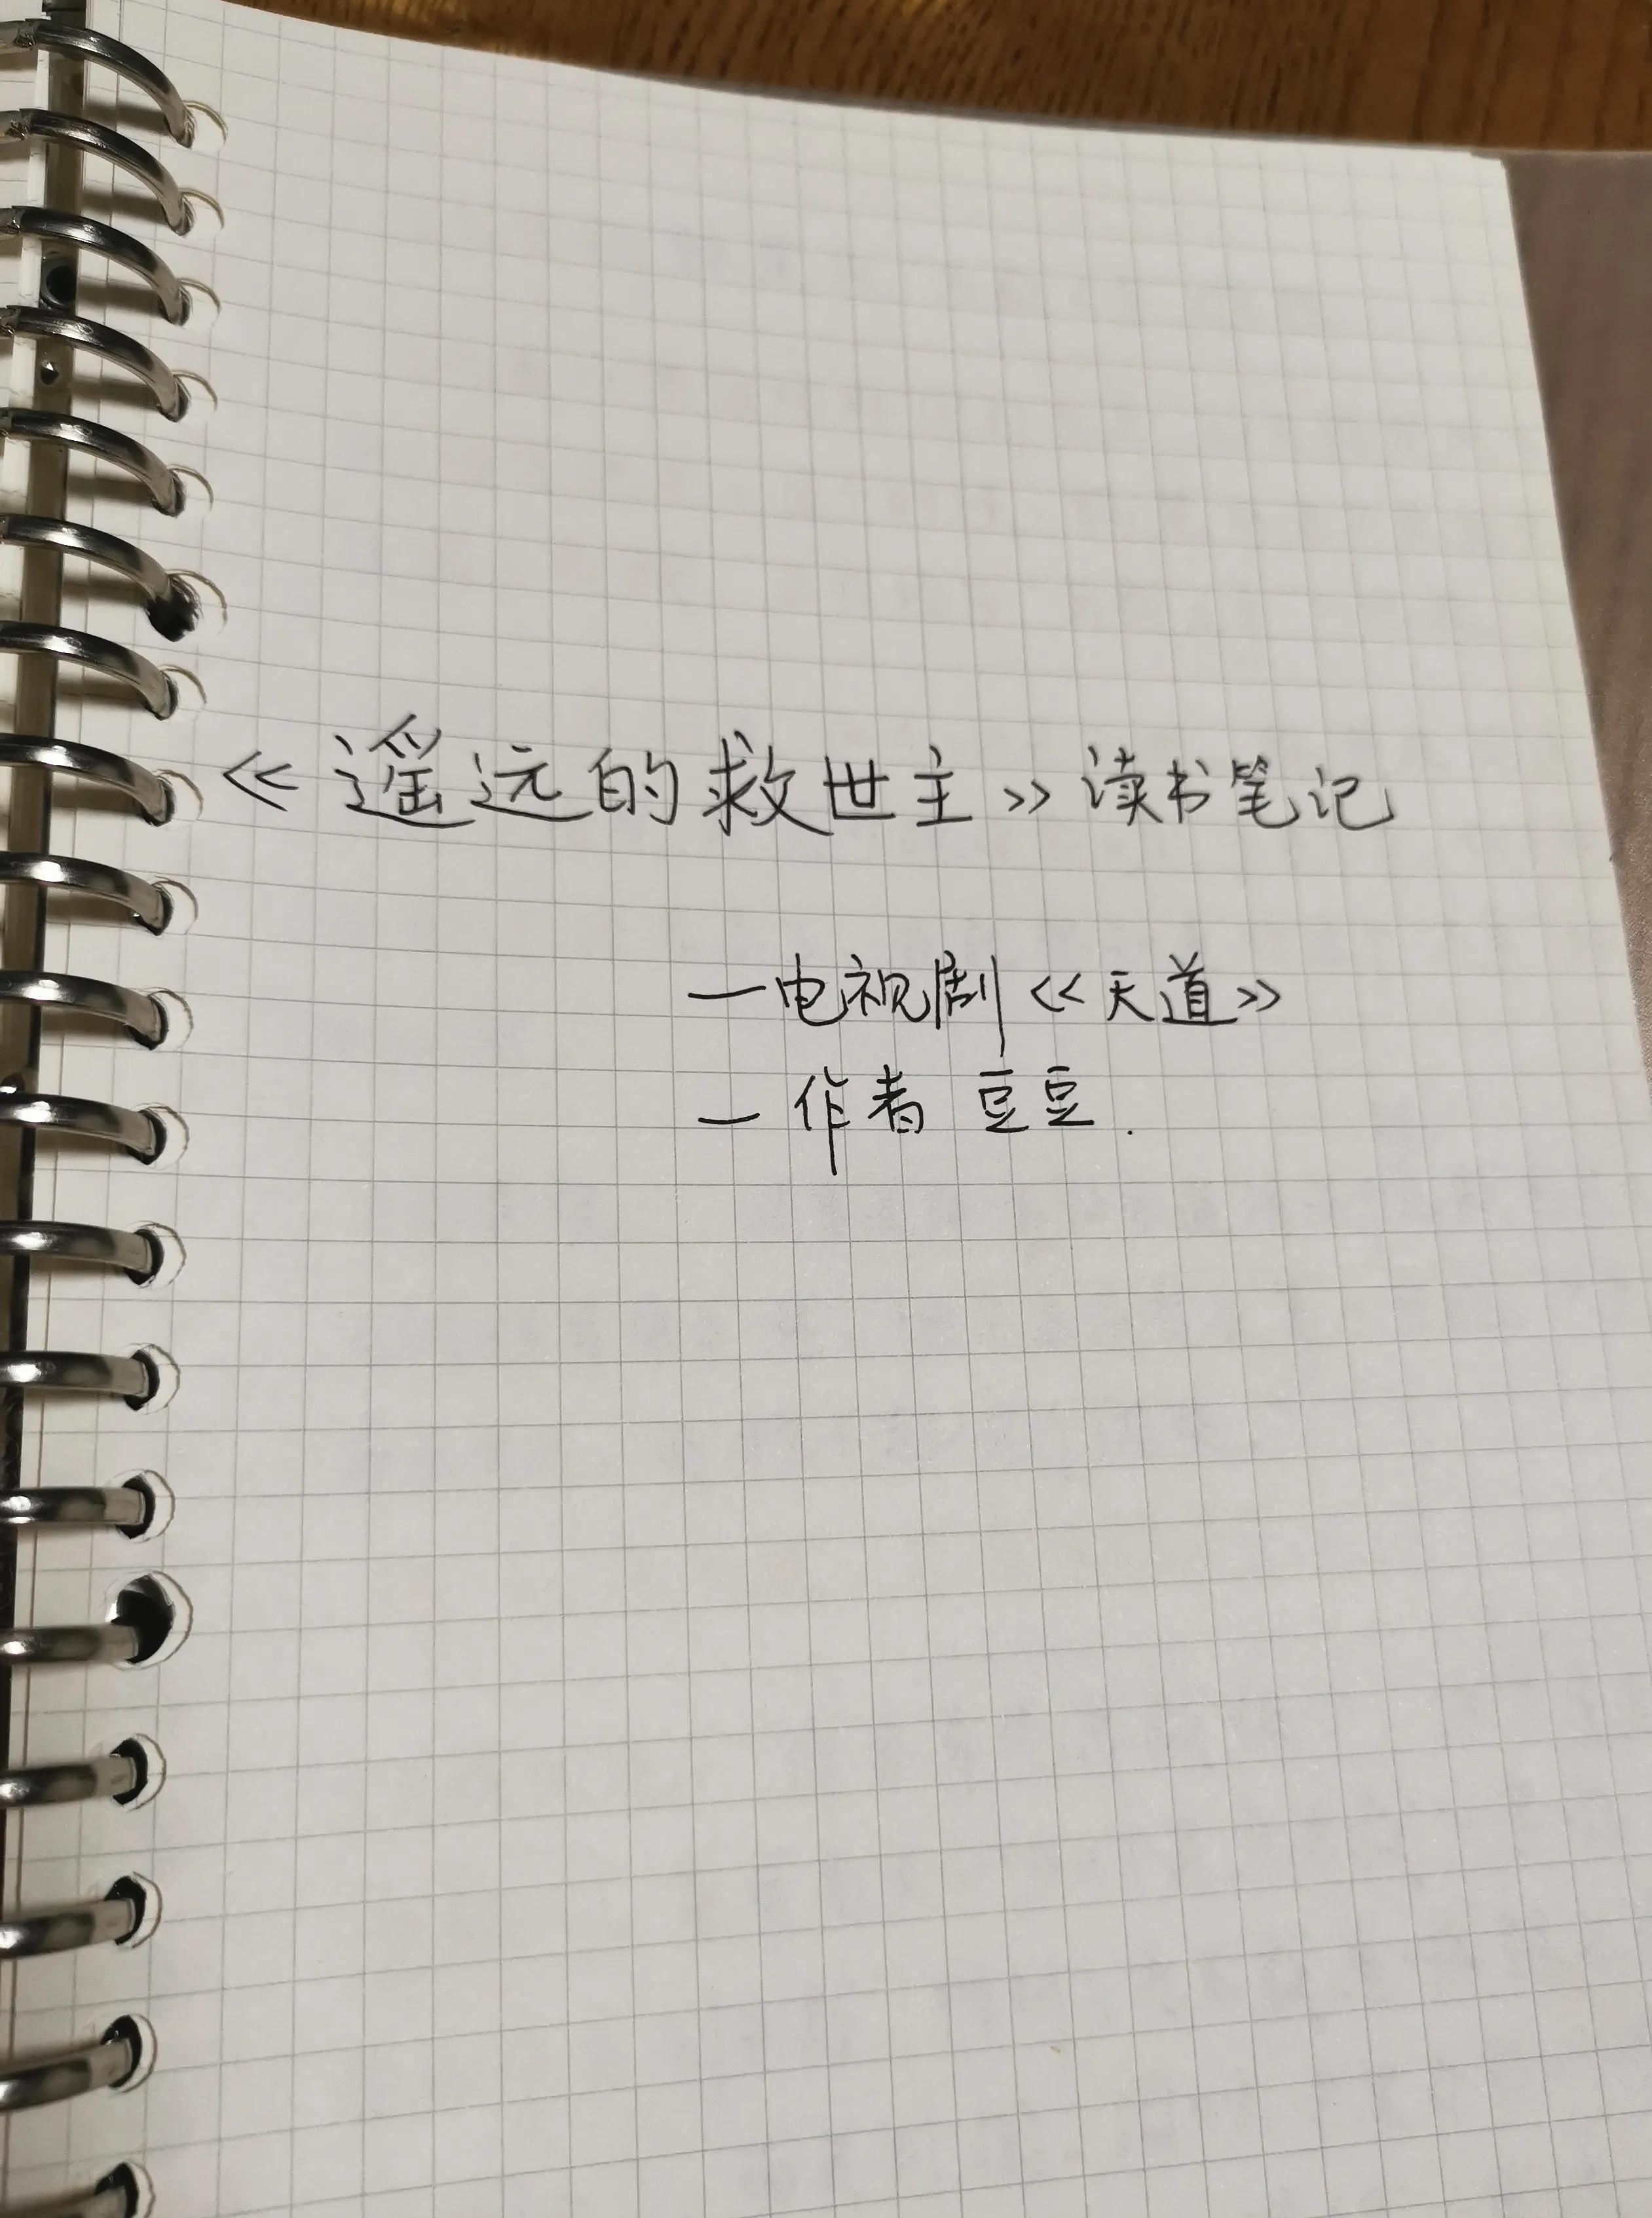 《遥远的救世主》读书笔记
—电视剧《天道》
—作者 豆豆.